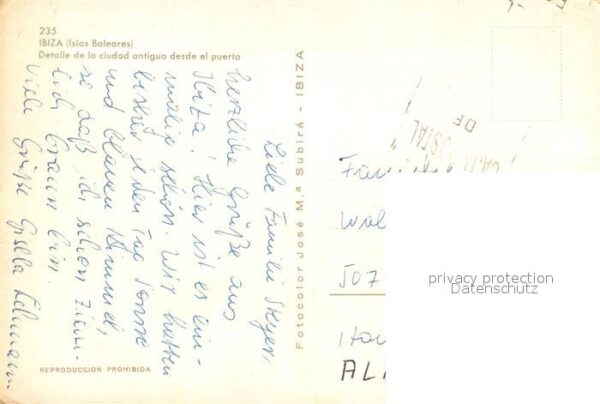 235
IBIZA (Islas Baleares)
Detalle de la ciudad antigua desde el puerto
Liebe Familie
herzliche Grüße aus
Ibiza! Hier ist es ein-
malig schön. Wir hatten
bisher jeden Tag Sonne
und blauen Himmel,
so daß ich schon ziem-
lich braun bin.
Viele Grüße Gisela Lehmann
REPRODUCCION PROHIBIDA
Fotocolor José M.ª Subirá - IBIZA
POSTAL
DE
Fam
507
privacy protection
Datenschutz